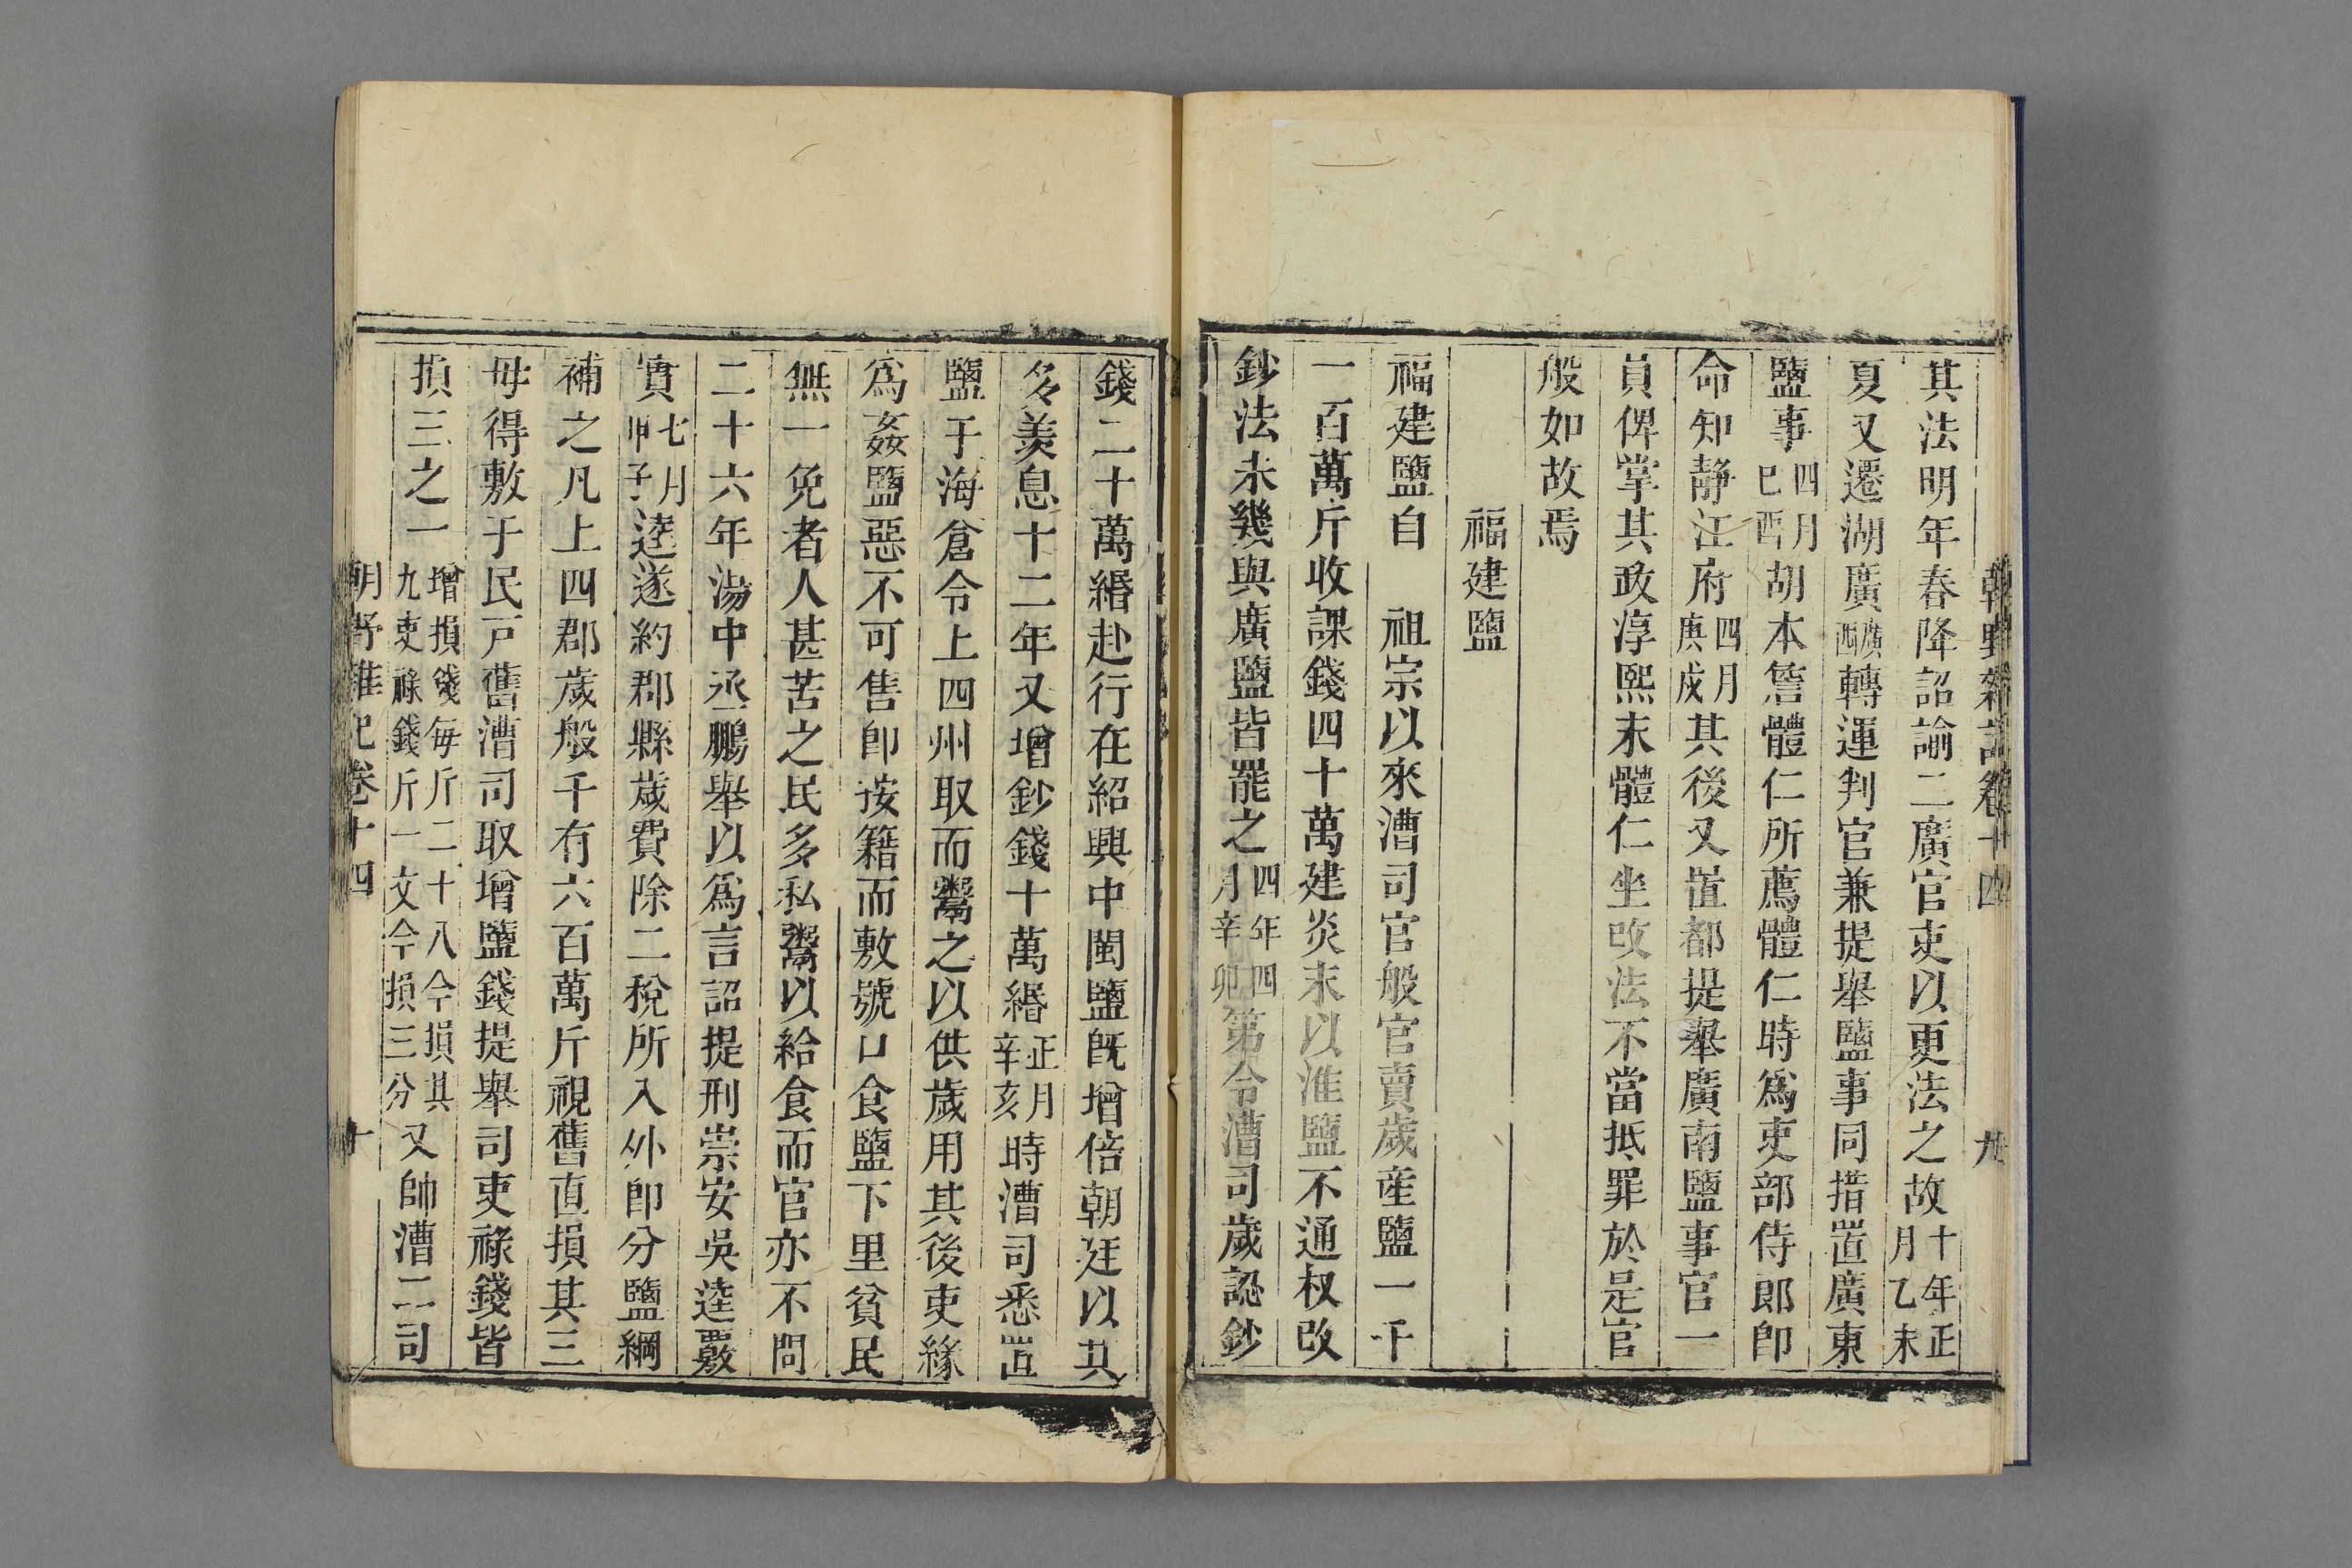 朝野雜記卷十四 九
其法明年春降詔諭二廣官吏以更法之故十年正月乙未
夏又遷湖廣廣西轉運判官兼提舉鹽事同措置廣東
鹽事四月巳酉胡本詹體仁所薦體仁時爲吏部侍郎即
命知靜江府四月庚戍其後又置都提舉廣南鹽事官一
員俾掌其政淳熙末體仁坐改法不當抵罪於是官
般如故焉
福建鹽
福建鹽自 祖宗以來漕司官般官賣歲産鹽一千
一百萬斤收課錢四十萬建炎末以淮鹽不通权改
鈔法未幾與廣鹽皆罷之四年四月辛卯第令漕司歲認鈔
錢二十萬緡赴行在紹興中閩鹽既增倍朝廷以其
多羨息十二年又增鈔錢十萬緡正月辛亥時漕司悉置
鹽于海倉令上四州取而鬻之以供歲用其後吏緣
爲姦鹽惡不可售即按籍而敷號口食鹽下里貧民
無一免者人甚苦之民多私鬻以給食而官亦不問
二十六年湯中丞鵬舉以爲言詔提刑崇安吳逵覈
實七月甲子逵遂約郡縣歲費除二稅所入外即分鹽綱
補之凡上四郡歲般千有六百萬斤視舊直損其三
毋得敷于民戸舊漕司取增鹽錢提舉司吏祿錢皆
損三之一增損錢每斤二十八今損其九吏祿錢斤一文今損三分又帥漕二司
朝野雜記卷十四 十